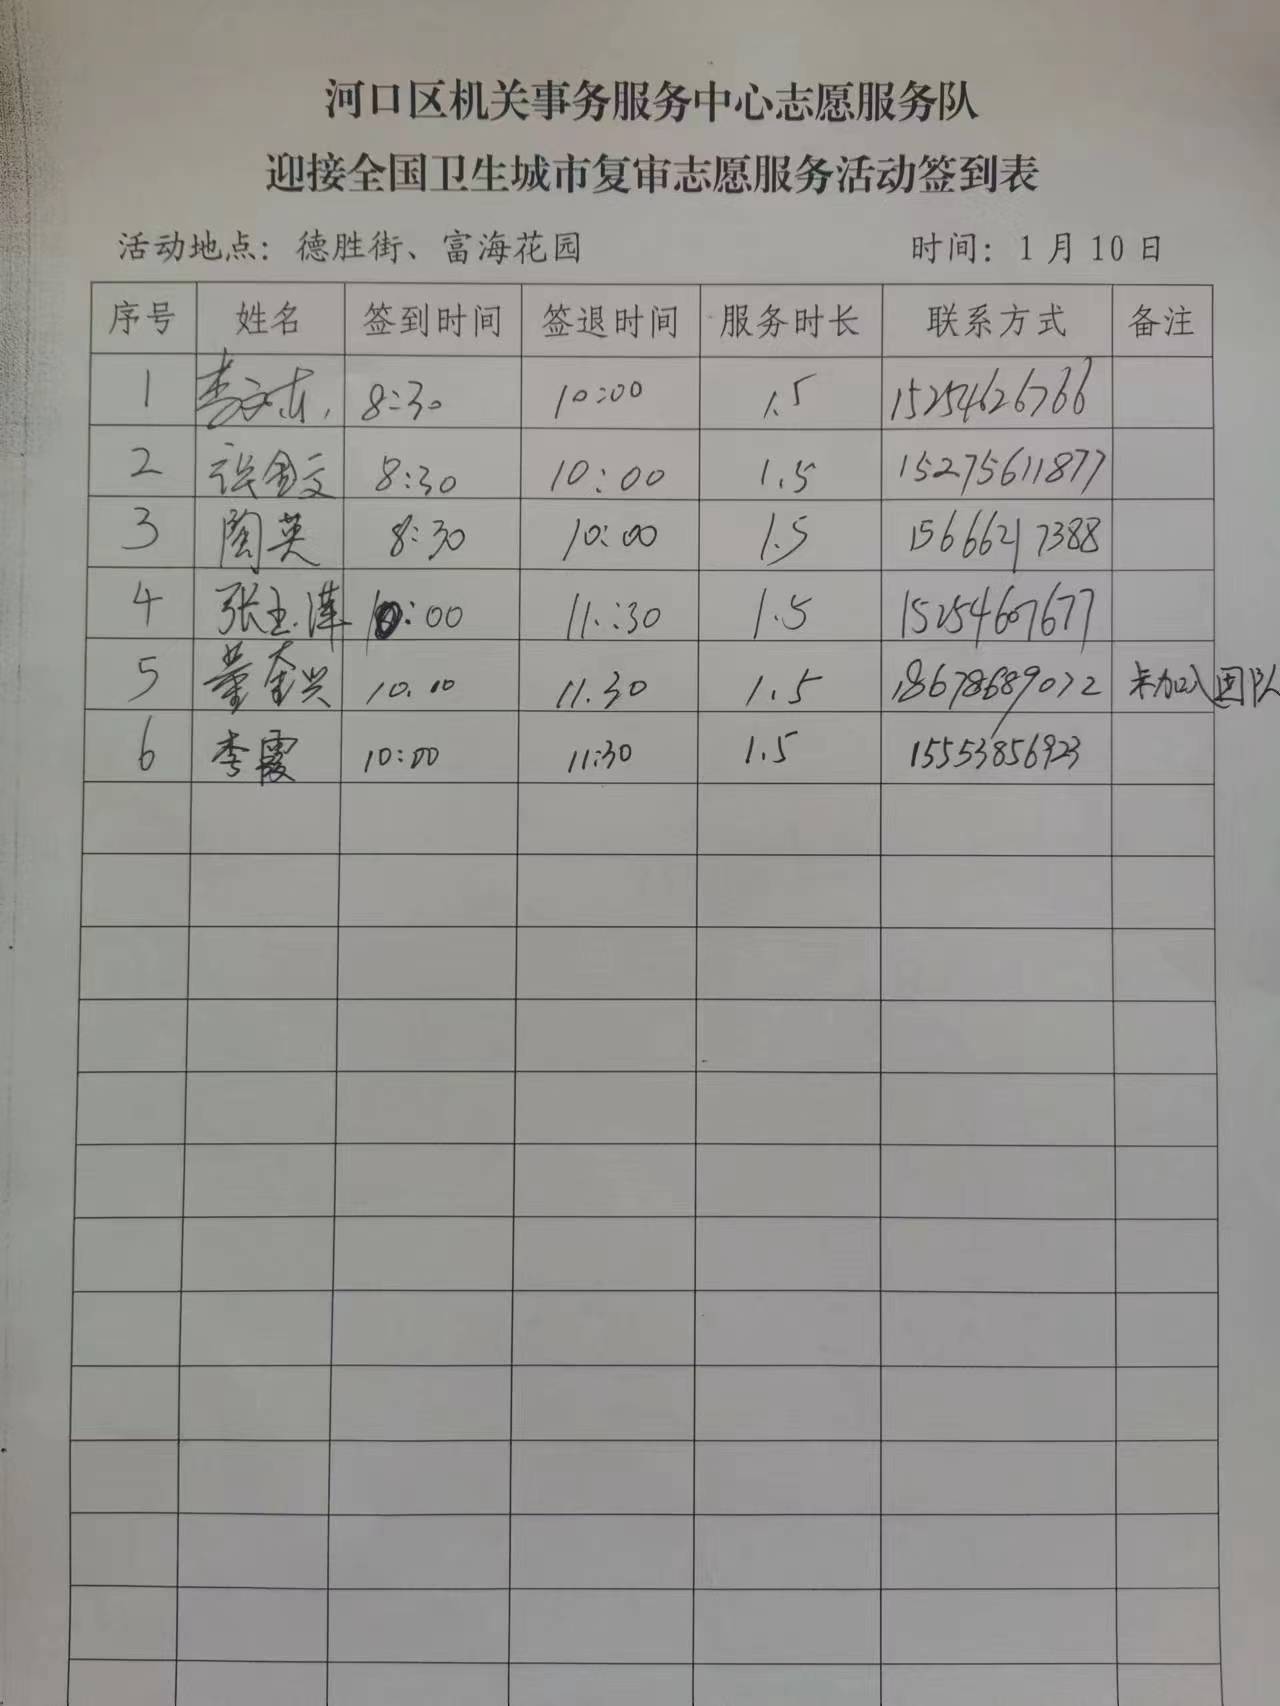 河口区机关事务服务中心志愿服务队
迎接全国卫生城市复审志愿服务活动签到表
活动地点：德胜街、富海花园 时间：1月10日
序号 姓名 签到时间 签退时间 服务时长 联系方式 备注
1 8:30 10:00 1.5 15254626766
2 8:30 10:00 1.5 15275611877
3 陶英 8:30 10:00 1.5 15666217388
4 张玉萍 10:00 11:30 1.5 15254607677
5 董奎兴 10.00 11.30 1.5 18678689072 未加入团队
6 李霞 10:00 11:30 1.5 15553856923